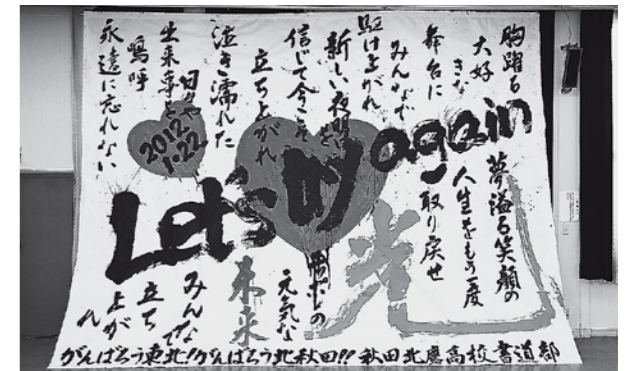 胸躍る
大好きな
舞台に
みんなで
駆け上がれ
新しい夜明けを
信じて今こそ
立ち上がれ
泣き濡れた
日々や
出来事を
嗚呼
永遠に忘れない
2012
1.22
Let's try again
夢溢る笑顔の
人生をもう一度
取り戻せ
光
元気な
未来
みんなで
立ち
上がれ
がんばろう東北!!がんばろう北秋田!! 秋田北鷹高校書道部